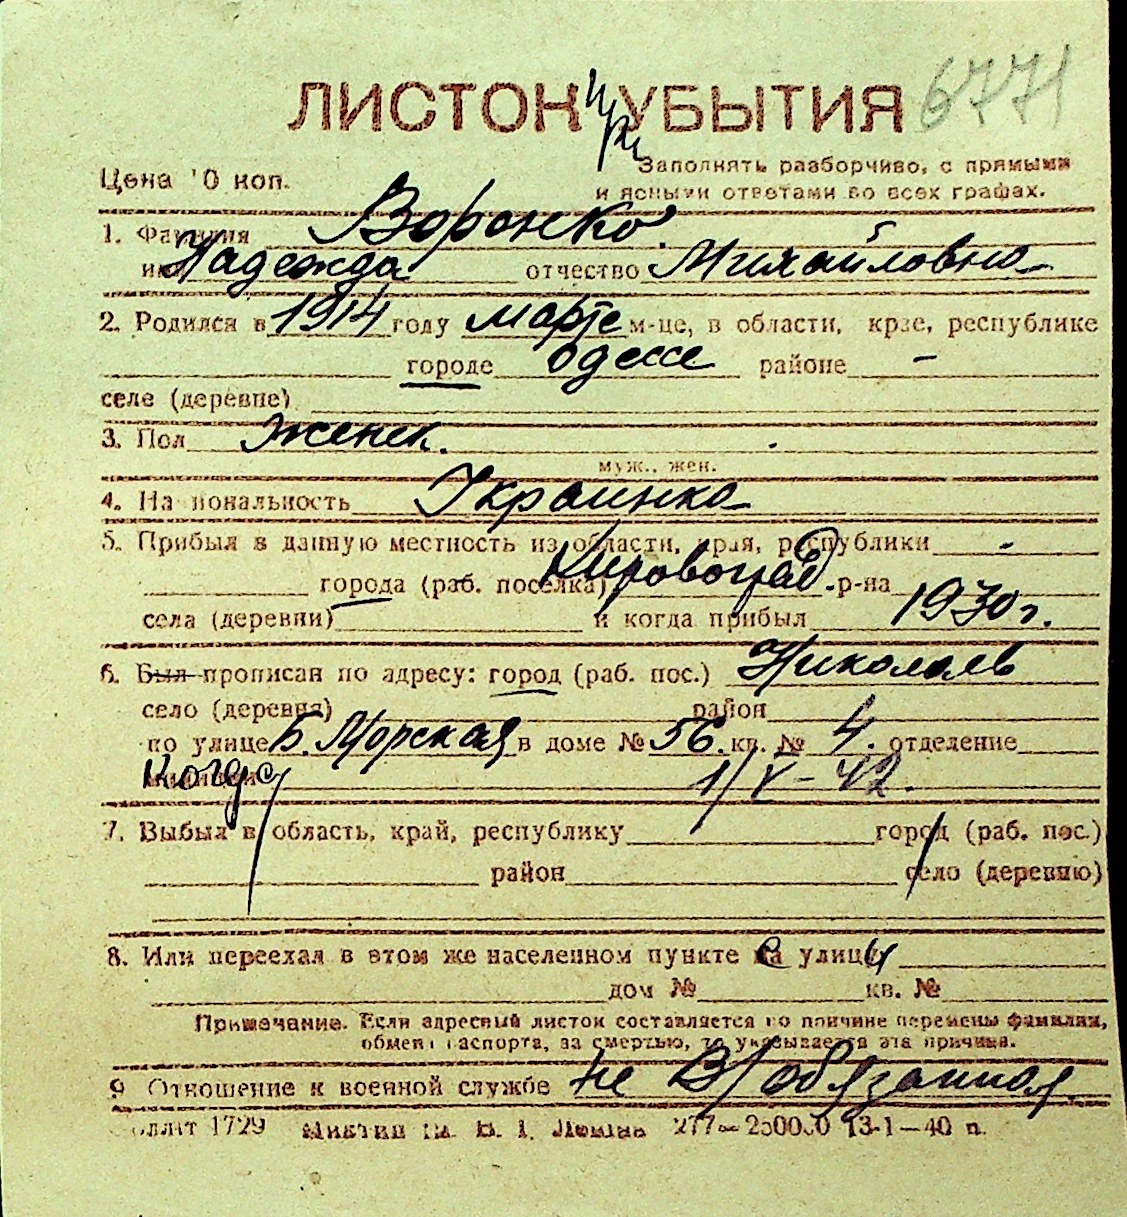 ЛИСТОК при УБЫТИЯ 6771
Цена 10 коп. Заполнять разборчиво, с прямыми
и ясными ответами во всех графах.
1. Фамилия Воронко
имя Надежда отчество Михайловна
2. Родился в 1914 году марте м-це, в области, крае, республике
городе Одессе районе —
селе (деревне)
3. Пол Женск.
муж., жен.
4. Национальность Украинка
5. Прибыл в данную местность из области, края, республики -
города (раб. поселка) Кировоград. р-на
села (деревни) и когда прибыл 1930 г.
6. Был прописан по адресу: город (раб. пос.) Николаев
село (деревня) район
по улице Б. Морская в доме № 56. кв. № 4. отделение
Когда 1/V-42.
7. Выбыл в область, край, республику город (раб. пос.)
район село (деревню)
8. Или переехал в этом же населенном пункте с улицы
дом № кв. №
Примечание. Если адресный листок составляется по причине перемены фамилии,
обмена паспорта, за смертью, то указывается эта причина.
9. Отношение к военной службе не в/обязанная.
1729 277—250000 13-1—40 п.